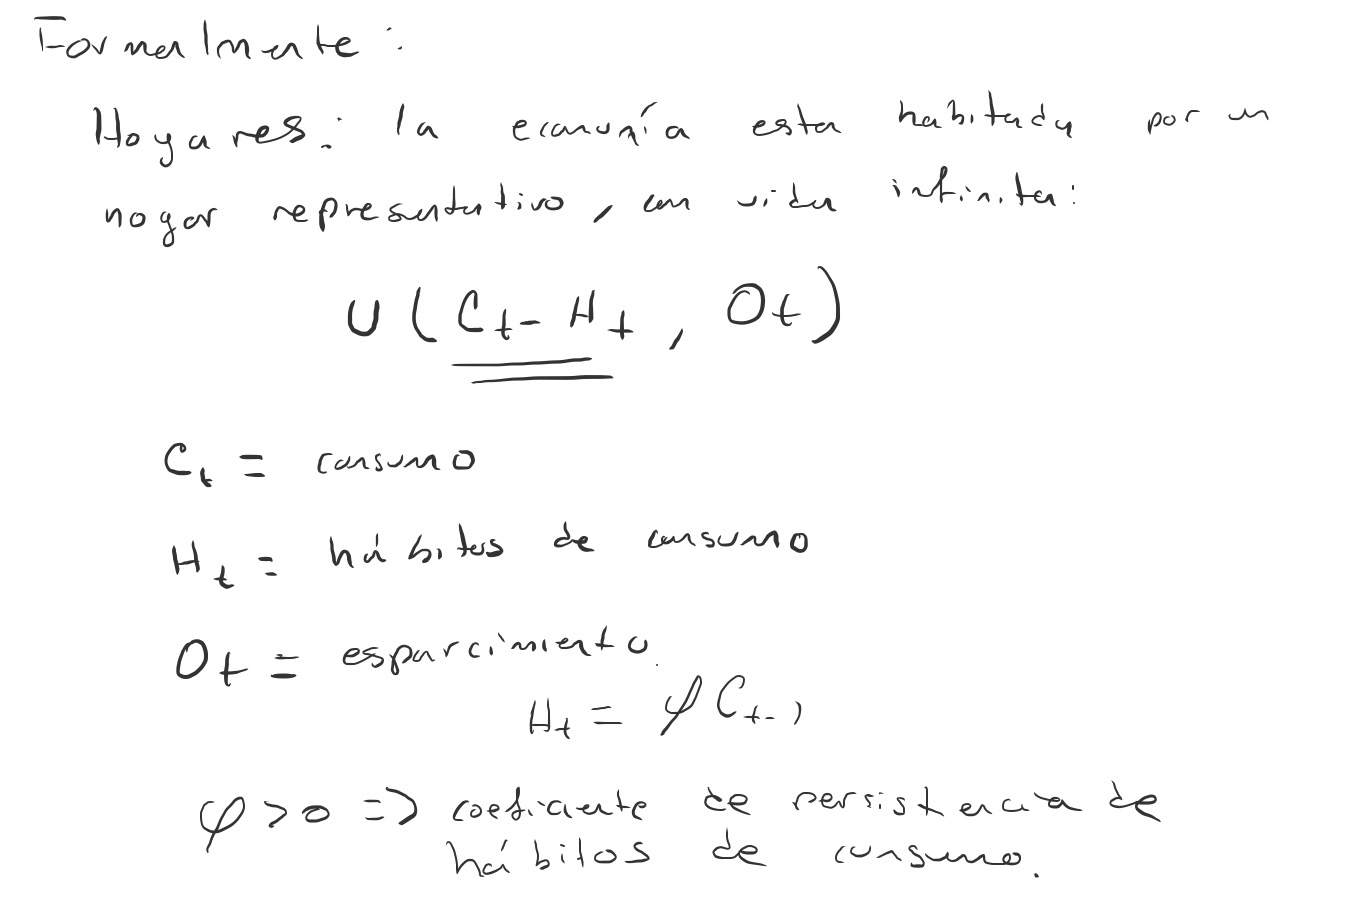 Formalmente:
Hogares: la economía esta habitada por un
hogar representativo, con vida infinita:
U ( C_t - H_t , O_t )
C_t = consumo
H_t = hábitos de consumo
O_t = esparcimiento.
H_t = φ C_{t-1}
φ > 0 => coeficiente de persistencia de
hábitos de consumo.